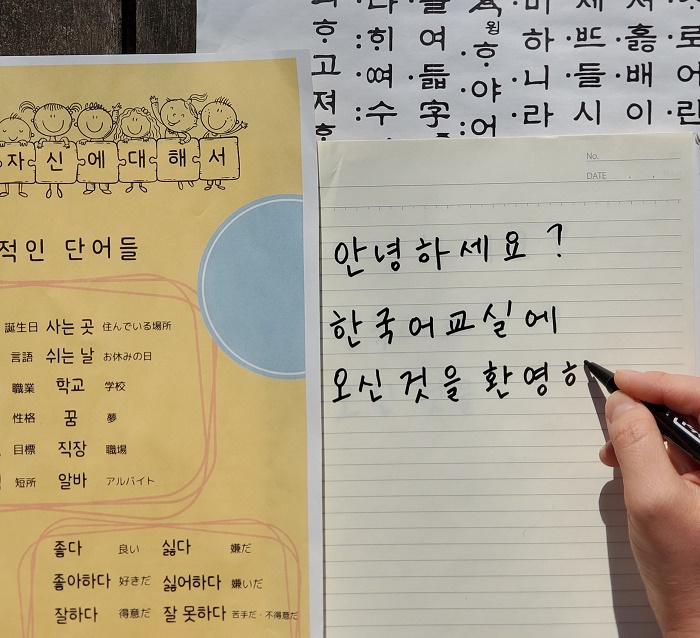 자신에대해서
적인 단어들
誕生日 사는 곳 住んでいる場所
言語 쉬는 날 お休みの日
職業 학교 学校
性格 꿈 夢
目標 직장 職場
短所 알바 アルバイト
좋다 良い 싫다 嫌だ
좋아하다 好きだ 싫어하다 嫌いだ
잘하다 得意だ 잘 못하다 苦手だ・不得意だ
고
져
:히
:수
여
듧
字
윙
ᄒᆞ
야
어
하
·니
·라
·들
시
·배
이
로
어
린
No.
DATE
안녕하세요?
한국어교실에
오신 것을 환영ㅎ